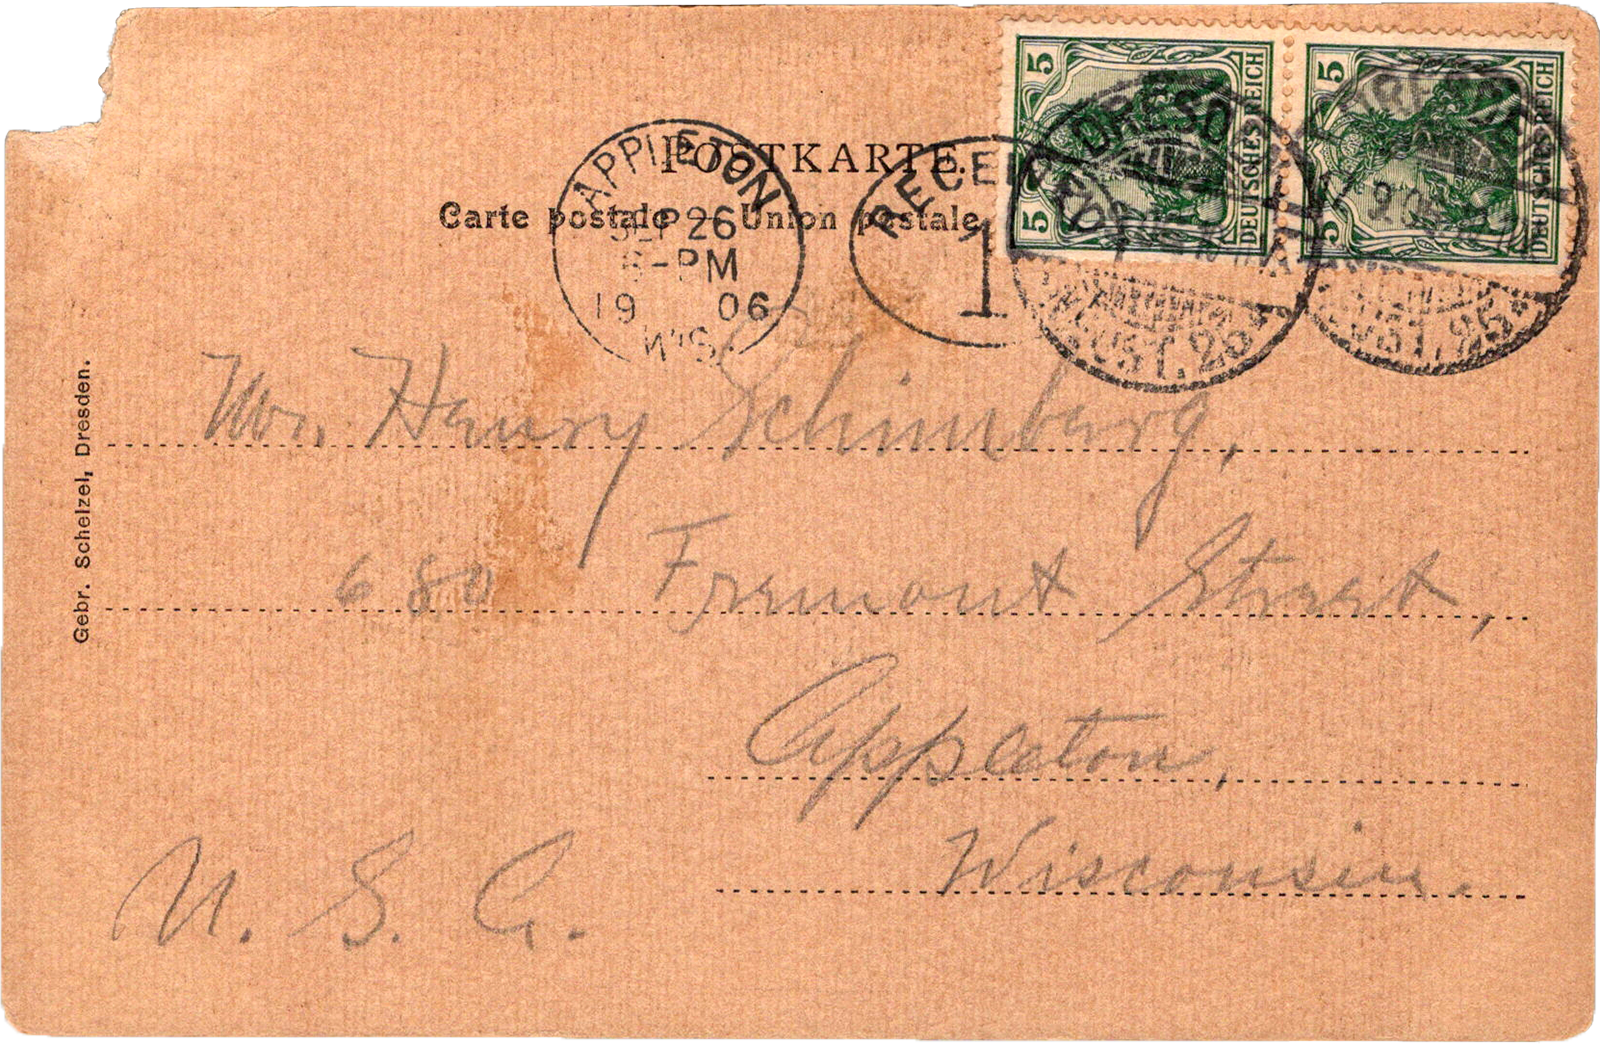 POSTKARTE.
Carte postale — Union postale
APPLETON
SEP 26
-PM
19 06
WIS.
RECEIVED
1
5 5 DEUTSCHES REICH
5 5 DEUTSCHES REICH
DRESDEN
ALTST. 25
ALTST. 25
Gebr. Schelzel, Dresden.
Mr. Henry Schimberg,
680 Fremont Street,
Appleton,
Wisconsin.
U. S. A.